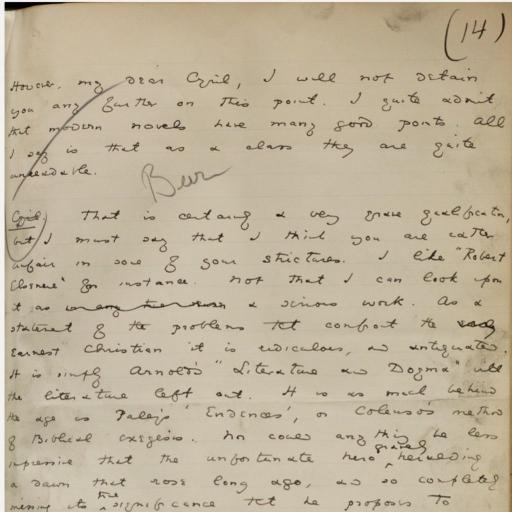 (14)
However, my dear Cyril, I will not detain
you any further on this point. I quite admit
that modern novels have many good points. All
I say is that as a class they are quite
unreadable.
Cyril. That is certainly a very grave qualification,
but I must say that I think you are rather
unfair in some of your strictures. I like "Robert
Elsmere" for instance. Not that I can look upon
it as a serious work. As a
statement of the problems that confront the
earnest Christian it is ridiculous, and antiquated.
It is simply Arnold's "Literature and Dogma" with
the literature left out. It is as much behind
the age as Paley's 'Evidences', or Colenso's method
of Biblical exegesis. Nor could anything be less
impressive that the unfortunate hero gravely heralding
a dawn that rose long ago, and so completely
missing its the significance that he proposes to